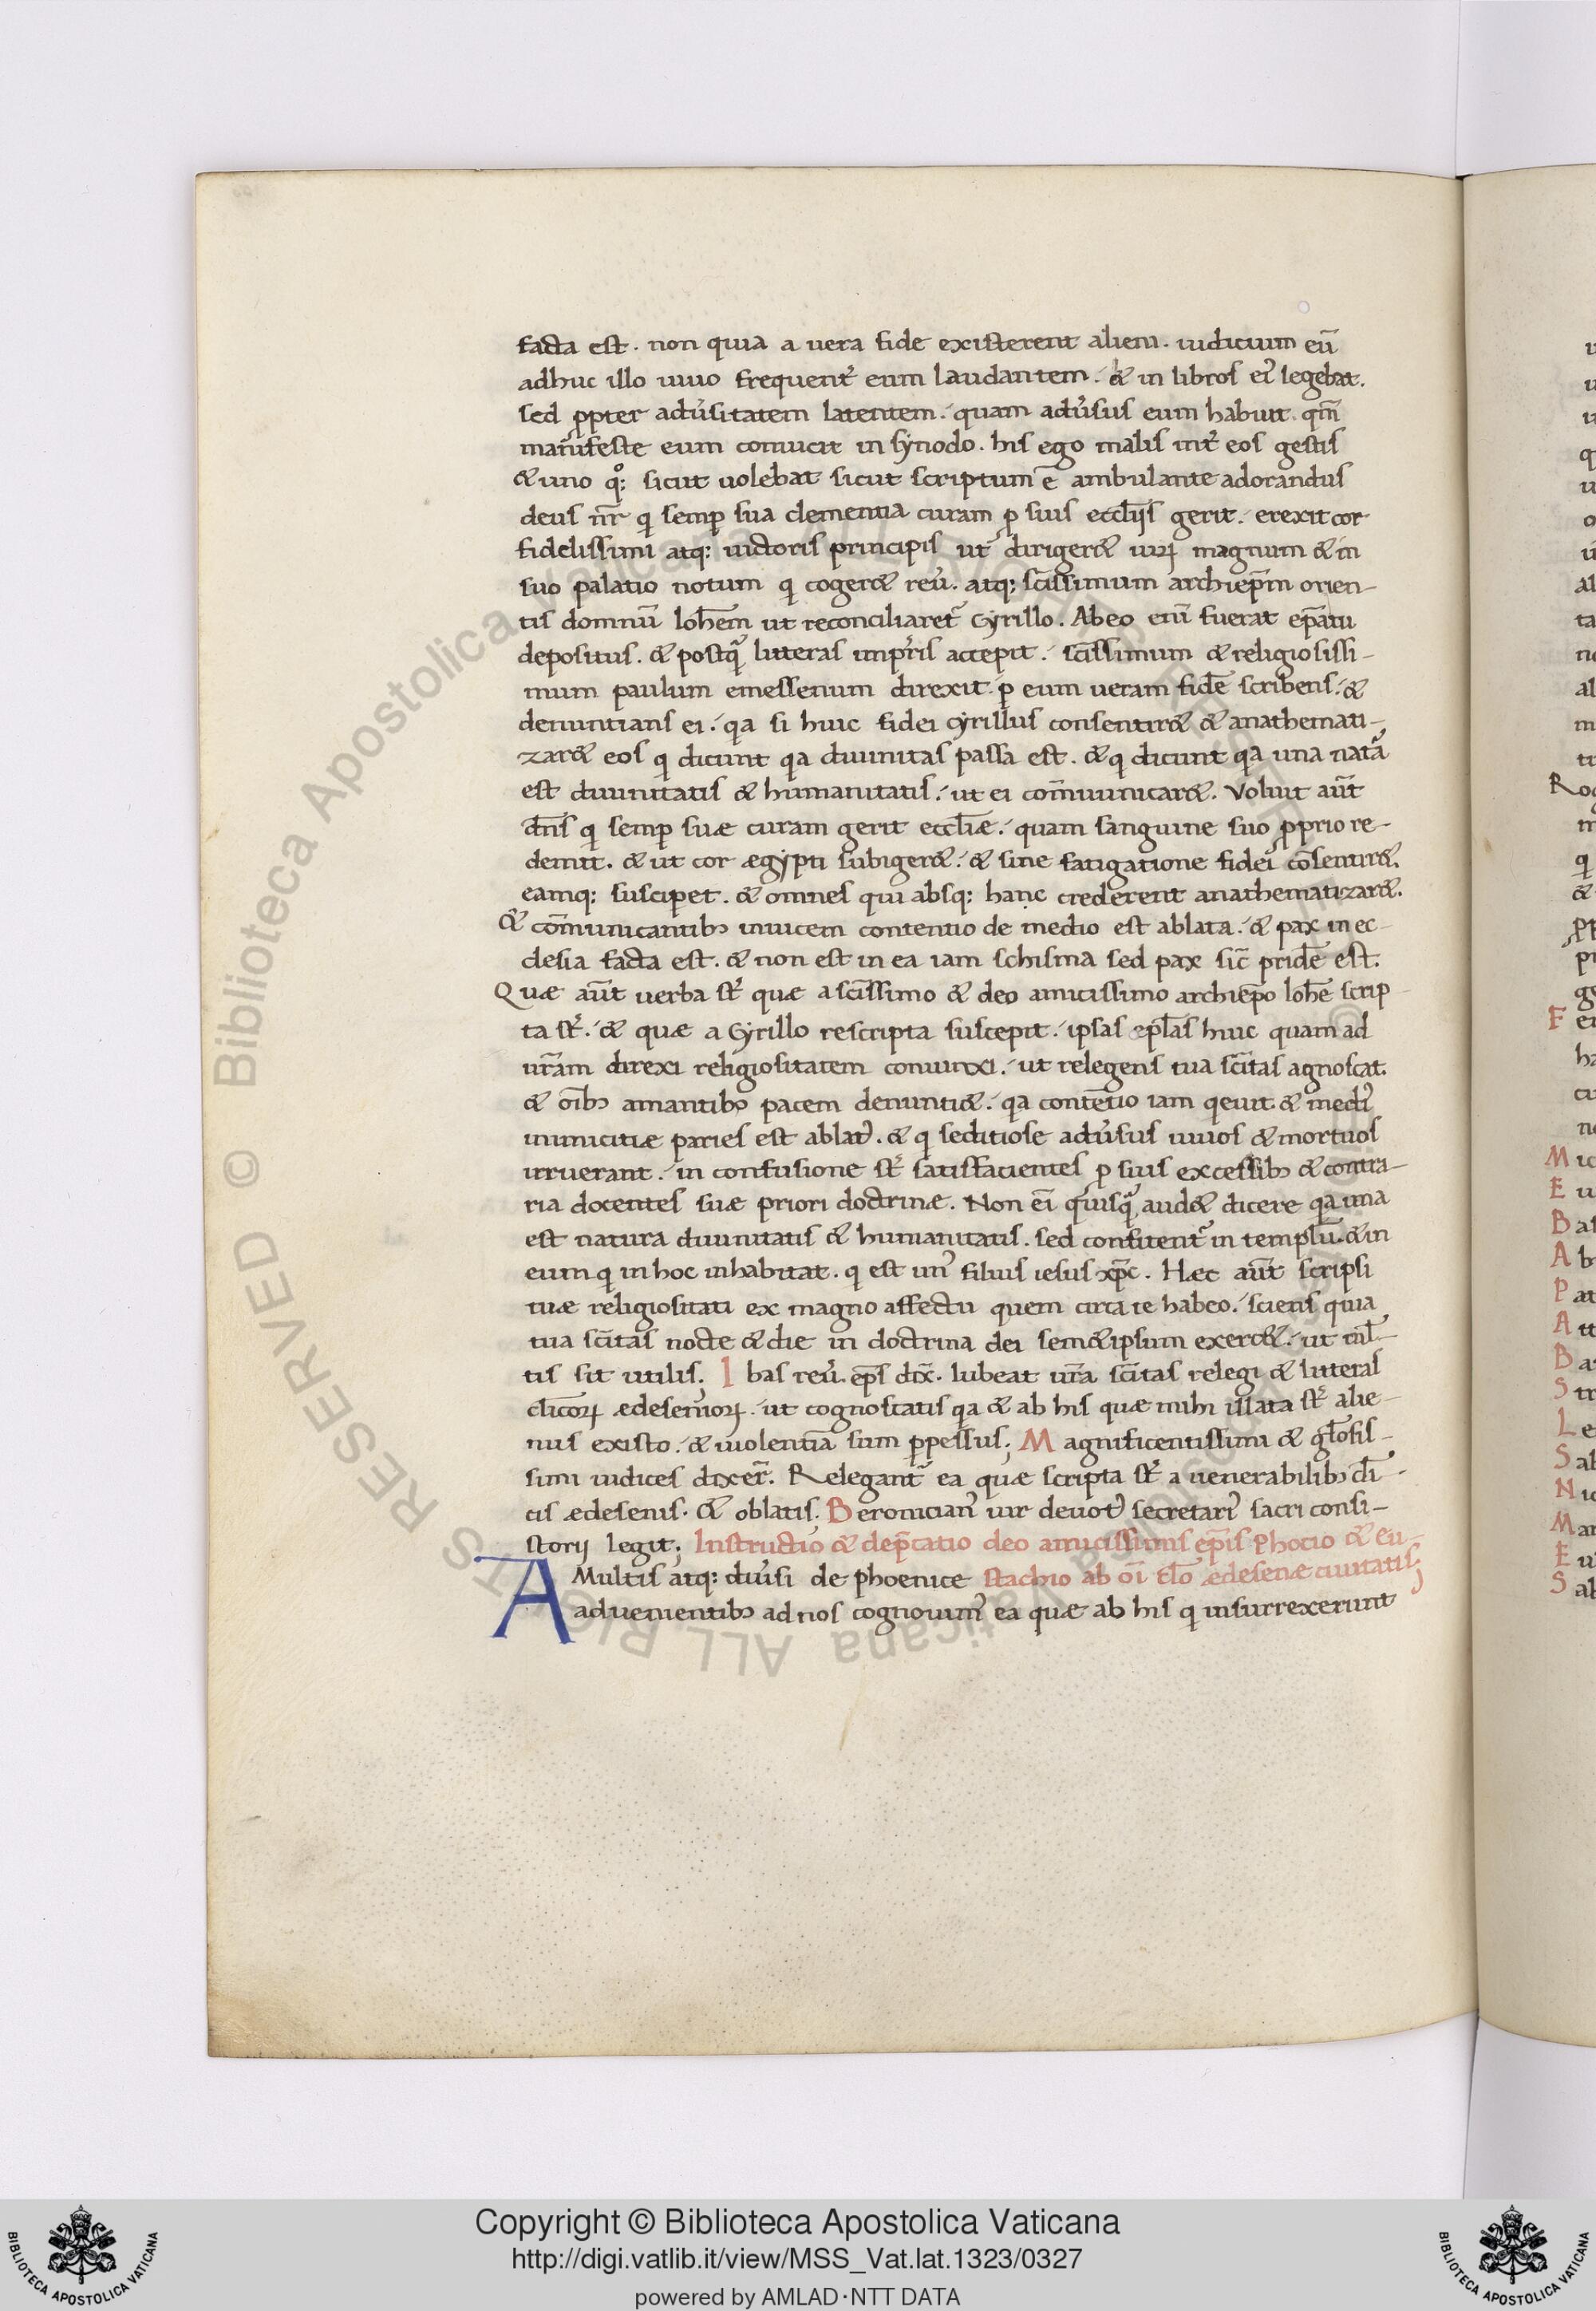 facta est. non quia a uera fide existerent alieni. iudicium eñ
adhuc illo uiuo frequent̃ eum laudantem. & in libros ei᾽ legebat.
sed ꝓpter adũsitatem latentem. quam adũsus eum habuit. qm̃
manifeste eum conuicit in synodo. his ego malis int̃ eos gestis
& uno q̊; sicut uolebat sicut scriptum ẽ ambulante adorandus
deus nr̃ q semꝑ sua clementia curam ꝓ suis eccl̃ijs gerit. erexit cor
fidelissimi atq; uictoris principis ut dirigeret uiꝝ magnum & in
suo palatio notum q cogeret reũ. atq; sc̃issimum archiep̃m orien-
tis domnũ Ioh̃em ut reconciliaret̃ Cyrillo. Ab eo eni᷑ fuerat ep̃atu
depositus. & postq̃ litteras imp̃ris accepit. sc̃issimum & religiosissi-
mum paulum emessenum direxit. ꝑ eum ueram fidẽ scribens. &
denuntians ei. qa si huic fidei cyrillus consentiret & anathemati-
zaret eos q dicunt qa diuinitas passa est. & q dicunt qa una natã
est diuinitatis & humanitatis. ut ei com̃unicaret. Voluit aũt
dñs q semꝑ suæ curam gerit eccl̃iæ. quam sanguine suo ꝓprio re-
demit. & ut cor ægypti subigeret. & sine fatigatione fidei cõsentiret.
eamq; susciperet. & omnes qui absq; hanc crederent anathematizaret.
& com̃unicantibꝯ inuicem contentio de medio est ablata. & pax in ec-
clesia facta est. & non est in ea iam schisma sed pax sic̃ pridẽ est.
Quæ aũt uerba st̃ quæ a sc̃issimo & deo amicissimo archiep̃o Ioh̃e scrip-
ta st̃. & quæ a Cyrillo rescripta suscepit. ipsas epl̃as huic quam ad
ur̃am direxi religiositatem coniunxi. ut relegens tua sc̃itas agnoscat.
& oĩbꝯ amantibꝯ pacem denuntiet. qa contẽtio iam qeuit. & medi᾽
inimicitiæ paries est ablat᾽. & q seditiose adũsus uiuos & mortuos
irruerant. in confusione st̃ satisfacientes ꝓ suis excessibꝯ & contra-
ria docentes suæ priori doctrinæ. Non ei᷑ quisq̃ audet dicere qa una
est natura diuinitatis & humanitatis. sed confitent̃ in templũ. & in
eum q in hoc inhabitat. q est un᾽ filius iesus xp̃c. Hæc aũt scripsi
tuæ religiositati ex magno affectu quem circa te habeo. sciens quia
tua sc̃itas nocte & die in doctrina dei semetipsum exercet. ut mul̃-
tis sit utilis; Ibas reũ. ep̃s dix̃. Iubeat ur̃a sc̃itas relegi & litteras
cl̃icoꝝ ædesenioꝝ. ut cognoscatis qa & ab his quæ mihi illata st̃ alie-
nus existo. & uiolentiã sum ꝑpessus; Magnificentissimi & gl̃osis-
simi iudices dixer̃. Relegant̃ ea quæ scripta st̃ a uenerabilibꝯ cl̃i-
cis ædesenis. & oblatis. Beronician᾽ uir deuot᾽ secretari᾽ sacri consi-
storij legit; Instructio & dep̃catio deo amicissimis ep̃is Photio & eu-
A Multis atq; diũsi de phoenice stachio ab oĩ cl̃o ædesenæ ciuitatis;
aduenientibꝯ ad nos cognouim᾽ ea quæ ab his q insurrexerunt
Copyright © Biblioteca Apostolica Vaticana
http://digi.vatlib.it/view/MSS_Vat.lat.1323/0327
powered by AMLAD·NTT DATA